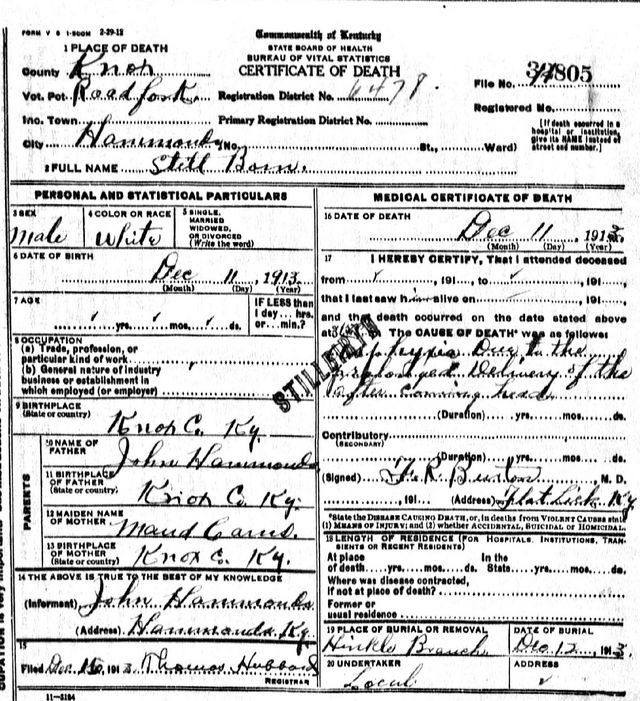 FORM V S 1-500M 2-29-12
Commonwealth of Kentucky
STATE BOARD OF HEALTH
BUREAU OF VITAL STATISTICS
CERTIFICATE OF DEATH
1 PLACE OF DEATH
County Knox
Vot. Pct. Roadfork
Inc. Town
City Hammonds (No. St., Ward)
Registration District No. 6478.
Primary Registration District No.
File No. 805
Registered No.
[If death occurred in a hospital or institution, give its NAME instead of street and number.]
2 FULL NAME Still Born.
PERSONAL AND STATISTICAL PARTICULARS
3 SEX Male
4 COLOR OR RACE White
5 SINGLE, MARRIED WIDOWED, OR DIVORCED (Write the word)
6 DATE OF BIRTH
Dec 11, 1913
(Month) (Day) (Year)
7 AGE
yrs. mos. ds.
IF LESS than 1 day... hrs. or... min.?
8 OCCUPATION
(a) Trade, profession, or particular kind of work
(b) General nature of industry business or establishment in which employed (or employer)
9 BIRTHPLACE
(State or country) Knox Co. Ky.
PARENTS
10 NAME OF FATHER John Hammonds
11 BIRTHPLACE OF FATHER (State or country) Knox Co Ky.
12 MAIDEN NAME OF MOTHER Maud
13 BIRTHPLACE OF MOTHER (State or country) Knox Co. Ky.
14 THE ABOVE IS TRUE TO THE BEST OF MY KNOWLEDGE
(Informant) John Hammonds
(Address) Hammonds Ky.
15
Filed Dec 191 3 Thomas Hubbard
REGISTRAR
11-3184
MEDICAL CERTIFICATE OF DEATH
16 DATE OF DEATH
Dec 11, 1913
(Month) (Day) (Year)
17 I HEREBY CERTIFY, That I attended deceased
from , 191 , to , 191 ,
that I last saw him alive on , 191 ,
and that death occurred on the date stated above
at M. The CAUSE OF DEATH* was as follows:
Due to the
prolonged Delivery of the
after Comming head
STILLBIRTH
(Duration) yrs. mos. ds.
Contributory
(SECONDARY)
(Duration) yrs. mos. ds.
(Signed) F. R. Burton M. D.
, 191 (Address) Flat Lick Ky
*State the DISEASE CAUSING DEATH, or, in deaths from VIOLENT CAUSES state (1) MEANS OF INJURY; and (2) whether ACCIDENTAL, SUICIDAL OR HOMICIDAL.
18 LENGTH OF RESIDENCE (FOR HOSPITALS, INSTITUTIONS, TRANSIENTS OR RECENT RESIDENTS)
At place of death yrs. mos. ds. In the State yrs. mos. ds.
Where was disease contracted, if not at place of death?
Former or usual residence
19 PLACE OF BURIAL OR REMOVAL Hinkle Branch
DATE OF BURIAL Dec 12, 1913
20 UNDERTAKER Local
ADDRESS